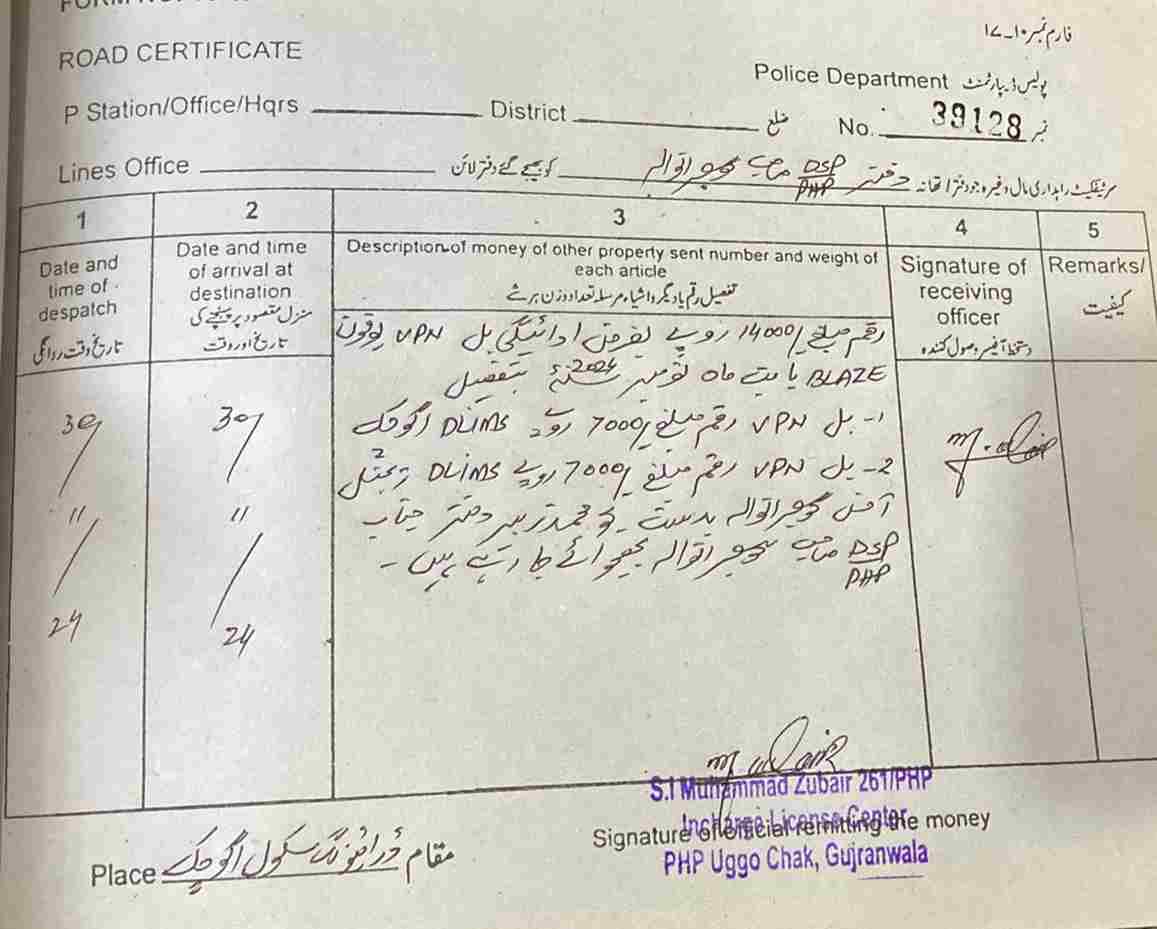 ROAD CERTIFICATE
فارم نمبر ۱۰-۱۷
Police Department پولیس ڈیپارٹمنٹ
P Station/Office/Hqrs District ضلع No. 39128 نمبر
Lines Office کو بھیجے گئے دفتر لائن دفتر DSP/PHP صاحب گوجرانوالہ سرٹیفکیٹ راہداری مال وغیرہ جو دفتر/تھانہ
1 2 3 4 5
Date and time of despatch
تاریخ وقت روانگی
Date and time of arrival at destination
منزل مقصود پر پہنچنے کی تاریخ اور وقت
Description of money of other property sent number and weight of each article
تفصیل رقم یا دیگر اشیاء مرسلہ تعداد وزن ہر شے
Signature of receiving officer
دستخط آفیسر وصول کنندہ
Remarks/
کیفیت
رقم مبلغ 14000/ روپے بغرض ادائیگی بل VPN
BLAZE بابت ماہ نومبر 2024 بتفصیل
1- بل VPN رقم مبلغ 7000/ روپے DLIMS اگوچک
2- بل VPN رقم مبلغ 7000/ روپے DLIMS
آفس گوجرانوالہ بدست محمد زبیر دفتر جناب
DSP/PHP صاحب گوجرانوالہ بھجوائے جا رہے ہیں -
30/11/24
30/11/24
S.I Muhammad Zubair 261/PHP
Incharge License Center
Signature of official remitting the money
PHP Uggo Chak, Gujranwala
Place مقام ڈرائیونگ سکول اگوچک